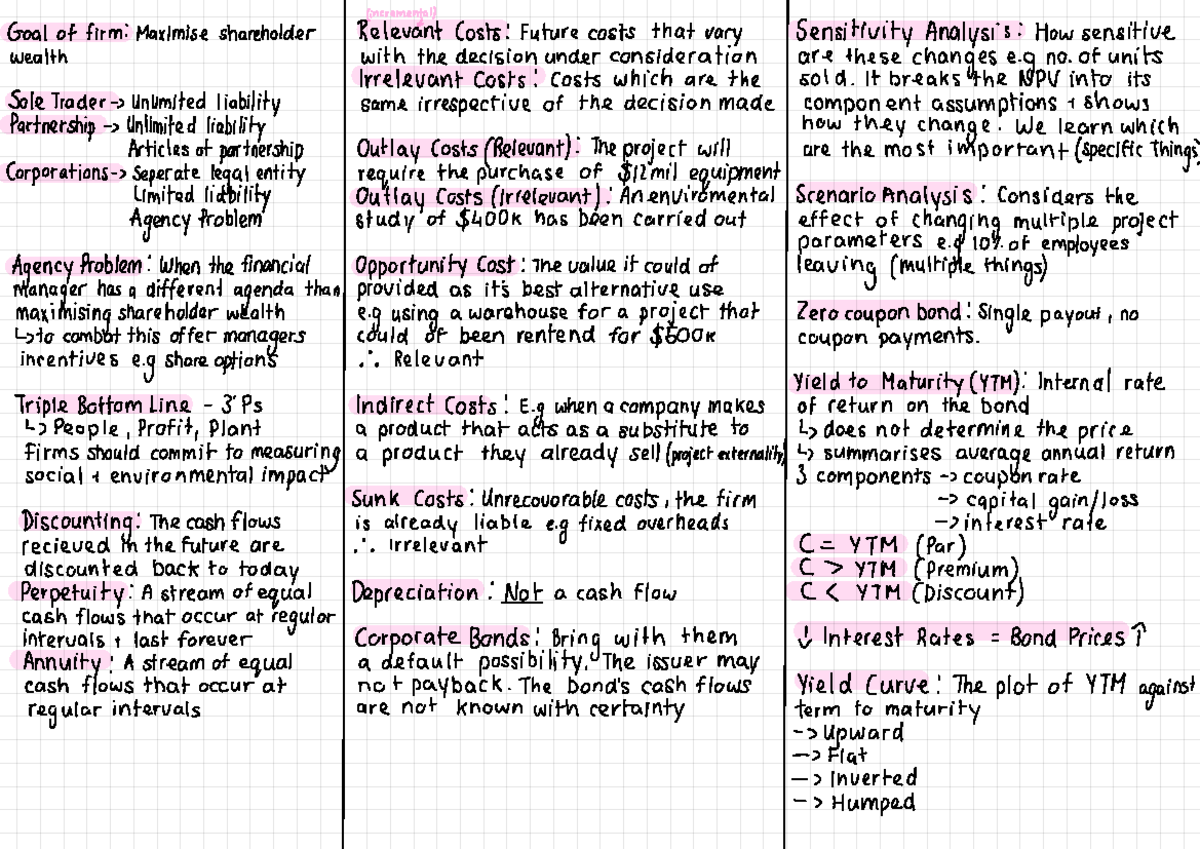 Goal of firm: Maximise shareholder
wealth
Sole Trader -> Unlimited liability
Partnership -> Unlimited liability
Articles of partnership
Corporations -> Seperate legal entity
Limited liability
Agency Problem
Agency Problem: When the financial
Manager has a different agenda than
maximising shareholder wealth
↳ to combat this offer managers
incentives e.g share options
Triple Bottom Line - 3 Ps
↳ People, Profit, Plant
Firms should commit to measuring
social + environmental impact
Discounting: The cash flows
recieved in the future are
discounted back to today
Perpetuity: A stream of equal
cash flows that occur at regular
intervals + last forever
Annuity: A stream of equal
cash flows that occur at
regular intervals
(incremental)
Relevant Costs: Future costs that vary
with the decision under consideration
Irrelevant Costs: Costs which are the
same irrespective of the decision made
Outlay Costs (Relevant): The project will
require the purchase of $12mil equipment
Outlay Costs (Irrelevant): An enviromental
study of $400k has been carried out
Opportunity Cost: The value it could of
provided as it's best alternative use
e.g using a warehouse for a project that
could of been rentend for $500k
∴ Relevant
Indirect Costs: E.g when a company makes
a product that acts as a substitute to
a product they already sell (project externality)
Sunk Costs: Unrecovorable costs, the firm
is already liable e.g fixed overheads
∴ Irrelevant
Depreciation: Not a cash flow
Corporate Bonds: Bring with them
a default possibility. The issuer may
not payback. The bond's cash flows
are not known with certainty
Sensitivity Analysis: How sensitive
are these changes e.g no. of units
sold. It breaks the NPV into its
component assumptions + shows
how they change. We learn which
are the most important (specific things)
Scenario Analysis: Considers the
effect of changing multiple project
parameters e.g 10% of employees
leaving (multiple things)
Zero coupon bond: Single payout, no
coupon payments.
Yield to Maturity (YTM): Internal rate
of return on the bond
↳ does not determine the price
↳ summarises average annual return
3 components -> coupon rate
-> capital gain/loss
-> interest rate
C = YTM (Par)
C > YTM (Premium)
C < YTM (Discount)
↓ Interest Rates = Bond Prices ↑
Yield Curve: The plot of YTM against
term to maturity
-> Upward
-> Flat
-> Inverted
-> Humped